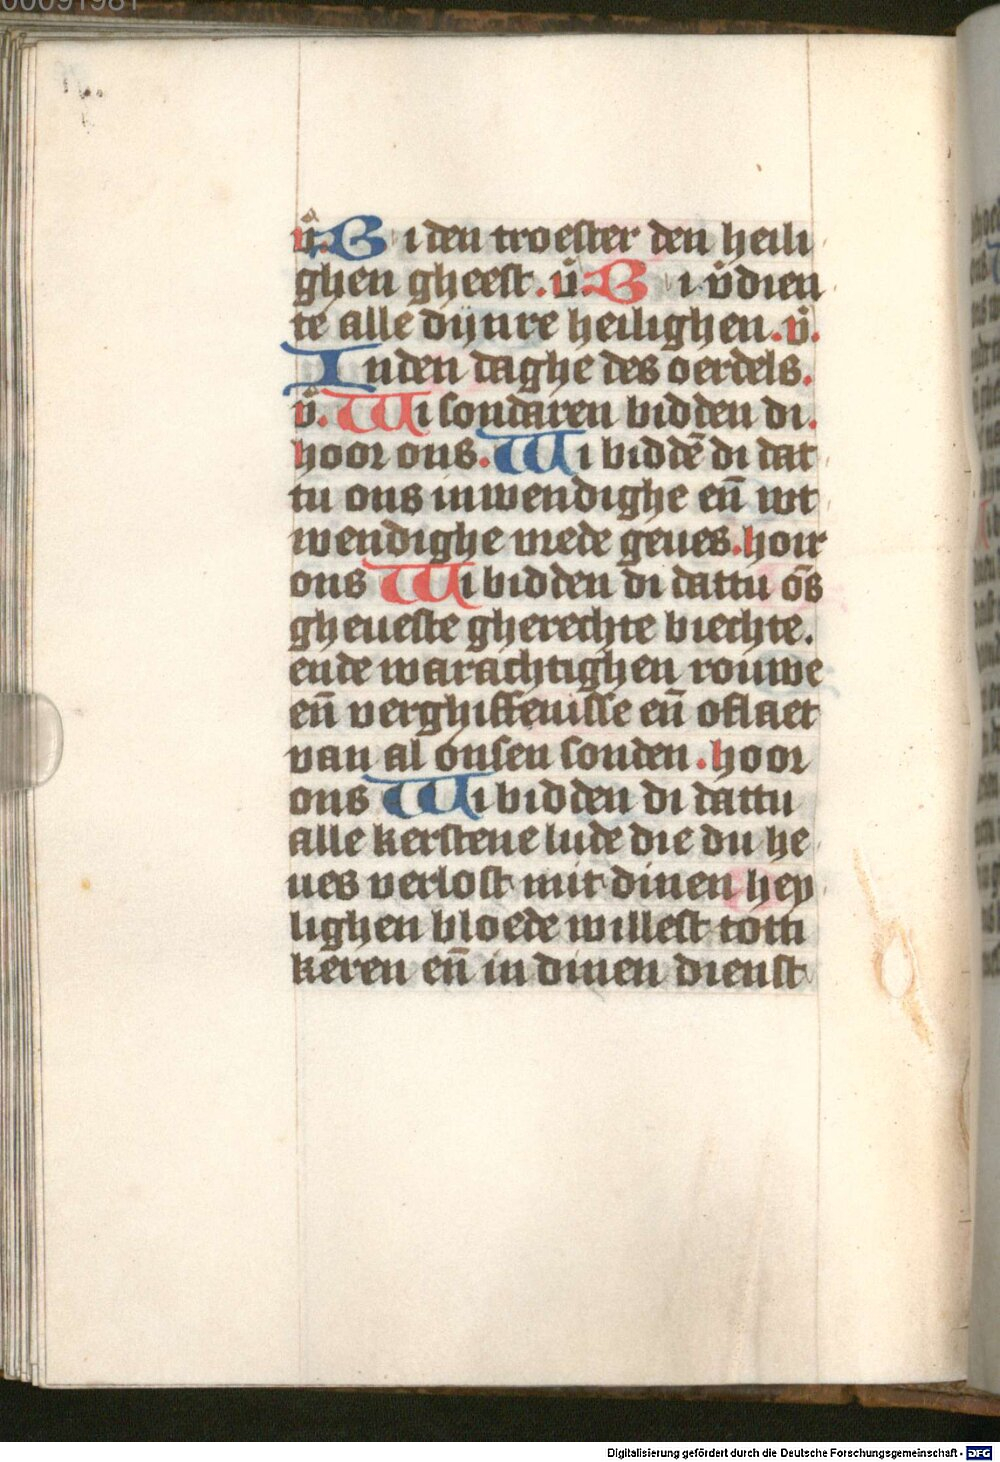 00091981
v̊. Bi den troester den heili
ghen gheest. v̊ Bi v̊dien
te alle dijnre heilighen. v̊.
Inden daghe des oerdels.
v̊. Wi sondaren bidden di.
hoor ons. Wi biddē di dat
tu ons inwendighe en̄ wt
wendighe vrede geues. hoir
ons Wi bidden di dattu ōs
gheueste gherechte biechte.
ende warachtighen rouwe
en̄ verghiffenisse en̄ oflaet
van al onsen sonden. hoor
ons Wi bidden di dattu
alle kerstene lude die du he
ues verlost mit dinen hey
lighen bloede willest toti
keren en̄ in dinen dienst
Digitalisierung gefördert durch die Deutsche Forschungsgemeinschaft - DFG